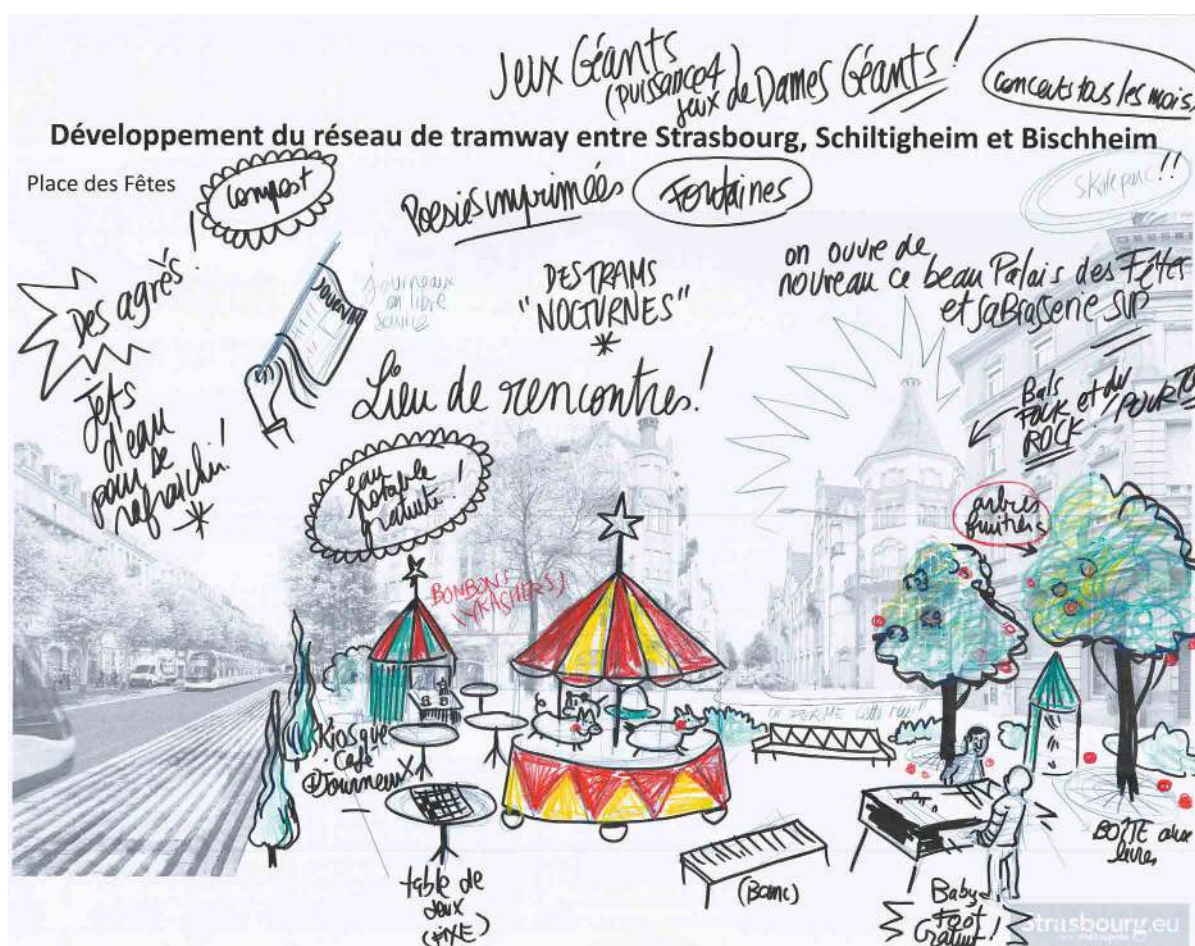 Jeux Géants
(puissance 4)
jeux de Dames Géants !
concerts tous les mois
Développement du réseau de tramway entre Strasbourg, Schiltigheim et Bischheim
Place des Fêtes
Compost
Poesies imprimées
Fontaines
Skate parc !!
Des agrès !
JOURNAL
journaux
en libre
service
DES TRAMS
"NOCTURNES"
*
on ouvre de
nouveau ce beau Palais des Fêtes
et sa Brasserie SUP
Lieu de rencontres !
jets
d'eau
pour se
rafraichir !
*
Bals
FOLK et du
ROCK !
eau
potable
gratuite !
arbres
fruitiers
BONBONS
(KASHERS)
on FERME cette rue !!
Kiosque
Café
Journeaux
table de
Jeux
(FIXE)
(Banc)
Baby-
Foot
Gratuit !
BOÎTE aux
livres
Strasbourg.eu